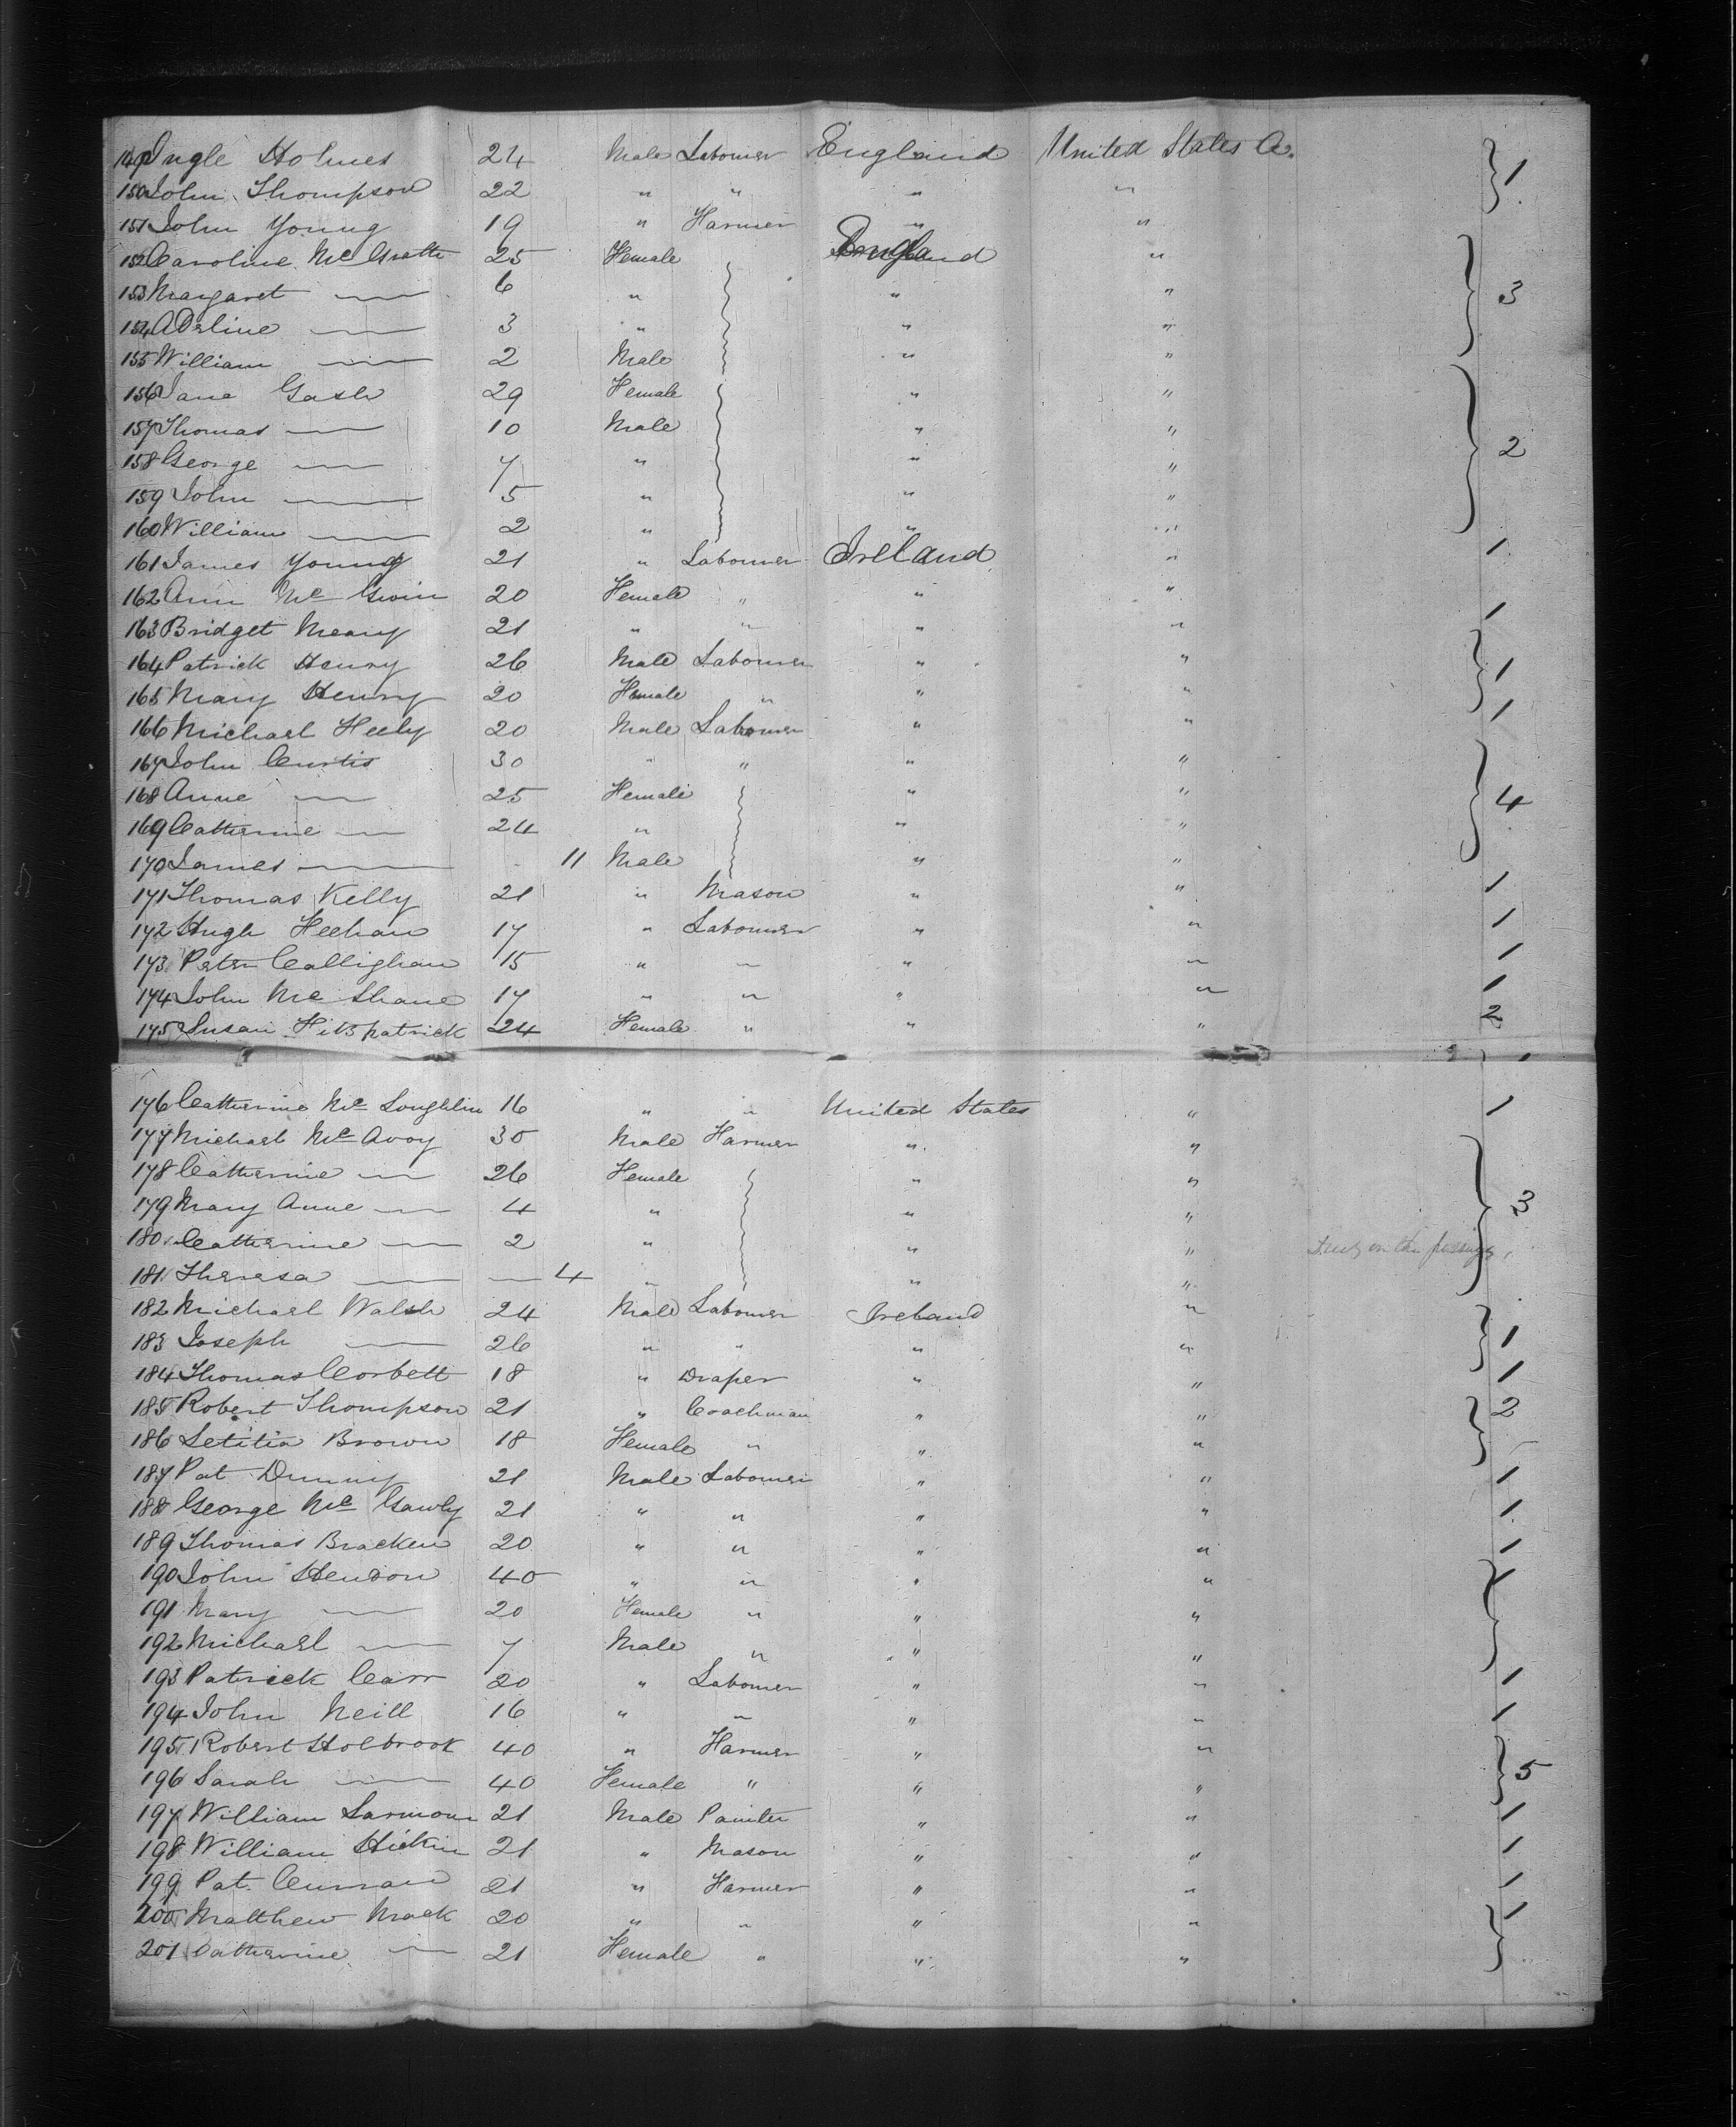 149 Ingle Holmes 24 Male Labourer England United States A. 1
150 John Thompson 22 " " " "
151 John Young 19 " Farmer " "
152 Caroline Mc Grath 25 Female England "
153 Margaret — 6 " " " 3
154 Adeline — 3 " " "
155 William — 2 Male " "
156 Jane Gash 29 Female " "
157 Thomas — 10 Male " "
158 George — 7 " " " 2
159 John — 5 " " "
160 William — 2 " " "
161 James Young 21 " Labourer Ireland " 1
162 Ann Mc 20 Female " " "
163 Bridget Meany 21 " " " " 1
164 Patrick Henry 26 Male Labourer " " 1
165 Mary Henry 20 Female " " "
166 Michael Heely 20 Male Labourer " " 1
167 John Curtis 30 " " " "
168 Anne — 25 Female " " 4
169 Catherine — 24 " " "
170 James — 11 Male " "
171 Thomas Kelly 21 " Mason " " 1
172 Hugh Feehan 17 " Labourer " " 1
173 Peter Callighan 15 " " " " 1
174 John Mc Shane 17 " " " " 1
175 Susan Fitzpatrick 24 Female " " " 2
176 Catherine Mc Loughlin 16 " " United States " 1
177 Michael Mc Avoy 30 Male Farmer " "
178 Catherine — 26 Female " "
179 Mary Anne — 4 " " " 3
180 Catherine — 2 " " " on the passage
181 Theresa — — 4 " " "
182 Michael Walsh 24 Male Labourer Ireland "
183 Joseph — 26 " " " " 1
184 Thomas Corbett 18 " Draper " " 1
185 Robert Thompson 21 " Coachman " " 2
186 Letitia Brown 18 Female " " "
187 Pat Dunny 21 Male Labourer " " 1
188 George Mc Gawly 21 " " " " 1
189 Thomas Bracken 20 " " " " 1
190 John Hendon 40 " " " " 1
191 Mary — 20 Female " " "
192 Michael — 7 Male " " "
193 Patrick Carr 20 " Labourer " " 1
194 John Neill 16 " " " " 1
195 Robert Holbrook 40 " Farmer " "
196 Sarah — 40 Female " " " 5
197 William 21 Male Painter " " 1
198 William Hickin 21 " Mason " " 1
199 Pat. Curran 21 " Farmer " " 1
200 Matthew Mack 20 " " " " 1
201 Catherine — 21 Female " " "